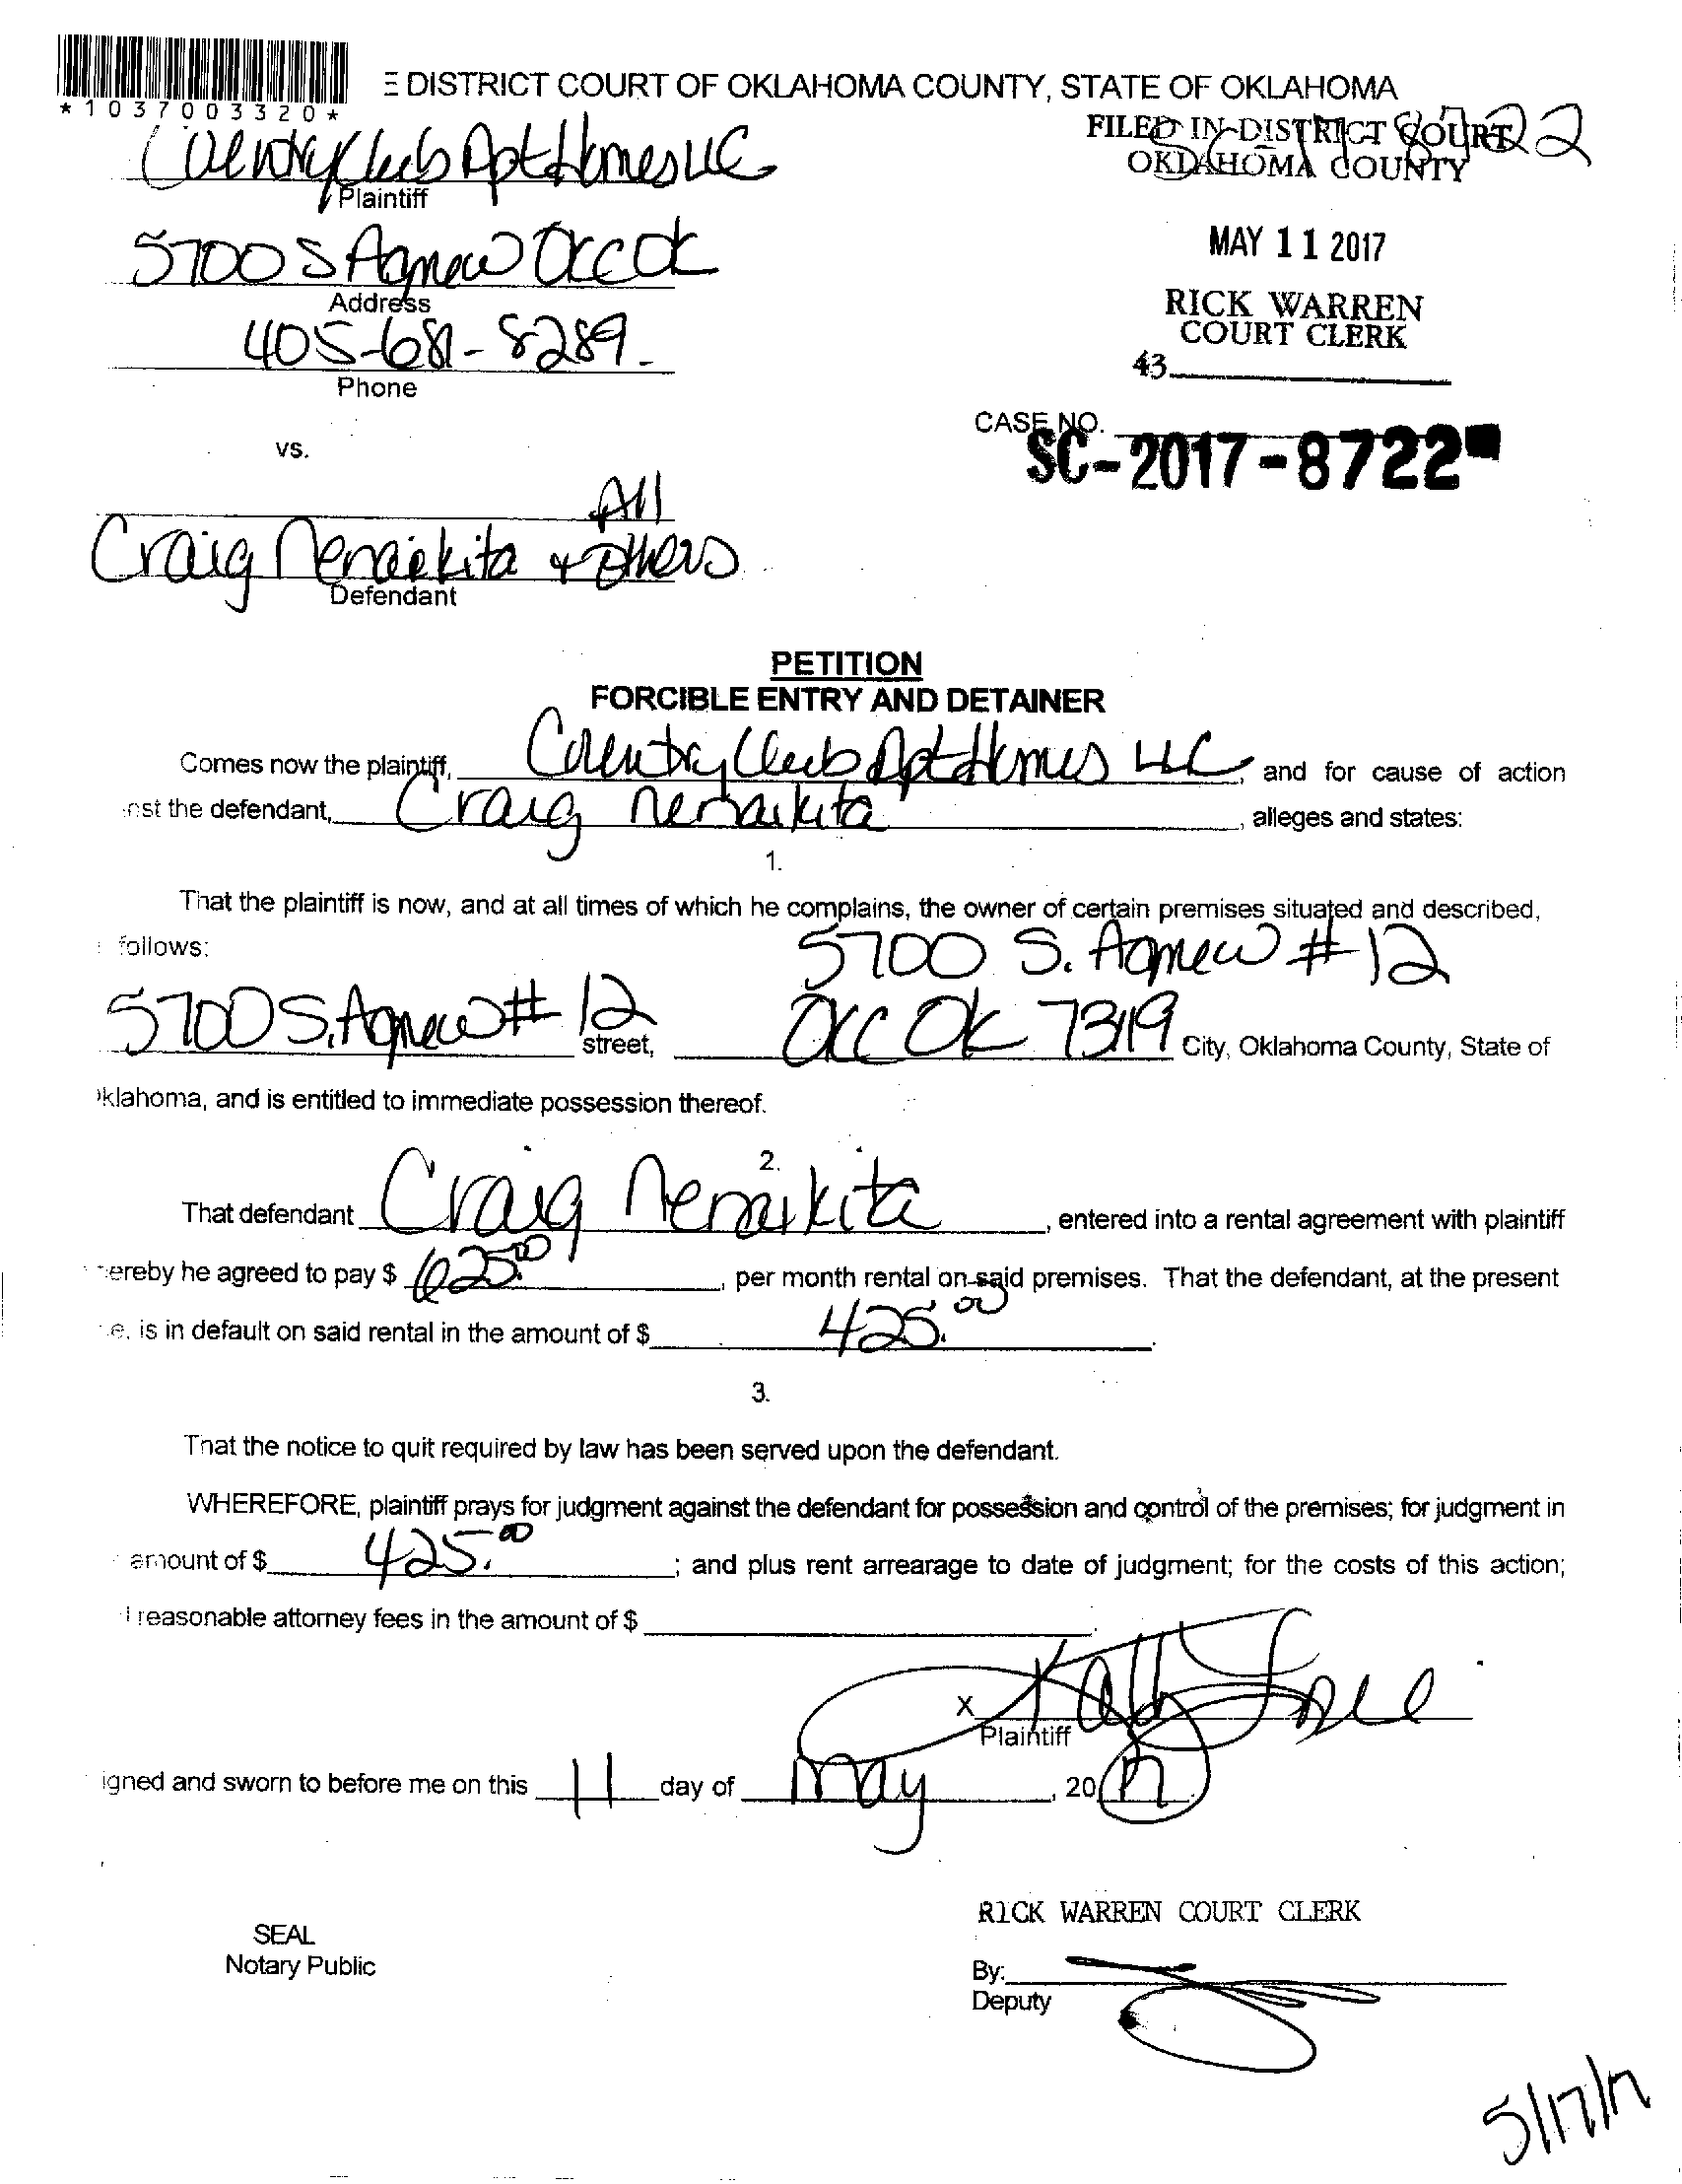 *1037003320*
E DISTRICT COURT OF OKLAHOMA COUNTY, STATE OF OKLAHOMA
Country Club Apt Homes LLC
Plaintiff
SC 17 8722
FILED IN DISTRICT COURT
OKLAHOMA COUNTY
5700 S Agnew OKC OK
Address
MAY 11 2017
405-681-8289
Phone
RICK WARREN
COURT CLERK
43
vs.
CASE NO.
SC-2017-8722
All
Craig Nenaikita & Others
Defendant
PETITION
FORCIBLE ENTRY AND DETAINER
Comes now the plaintiff, Country Club Apt Homes LLC, and for cause of action
inst the defendant, Craig Nenaikita, alleges and states:
1.
That the plaintiff is now, and at all times of which he complains, the owner of certain premises situated and described,
follows:
5700 S. Agnew # 12
5700 S. Agnew # 12 street, OKC OK 73119 City, Oklahoma County, State of
oklahoma, and is entitled to immediate possession thereof.
2.
That defendant Craig Nenaikita, entered into a rental agreement with plaintiff
ereby he agreed to pay $ 625.00, per month rental on said premises. That the defendant, at the present
e, is in default on said rental in the amount of $ 425.00.
3.
That the notice to quit required by law has been served upon the defendant.
WHEREFORE, plaintiff prays for judgment against the defendant for possession and control of the premises; for judgment in
amount of $ 425.00; and plus rent arrearage to date of judgment; for the costs of this action;
reasonable attorney fees in the amount of $
X
Plaintiff
igned and sworn to before me on this 11 day of May, 2017
RICK WARREN COURT CLERK
SEAL
Notary Public
By:
Deputy
5/17/17